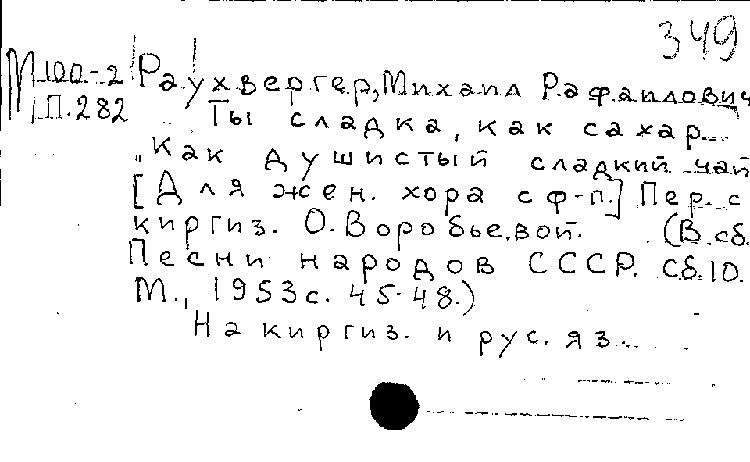 349
М100-2 Раухвергер, Михаил Рафаилович
П.282 Ты сладка, как сахар...
"Как душистый сладкий чай
[Для жен. хора с ф-п.] Пер. с
киргиз. О. Воробьевой. (В сб.
Песни народов СССР. Сб.10.
М., 1953 с. 45-48.)
На киргиз. и рус. яз.